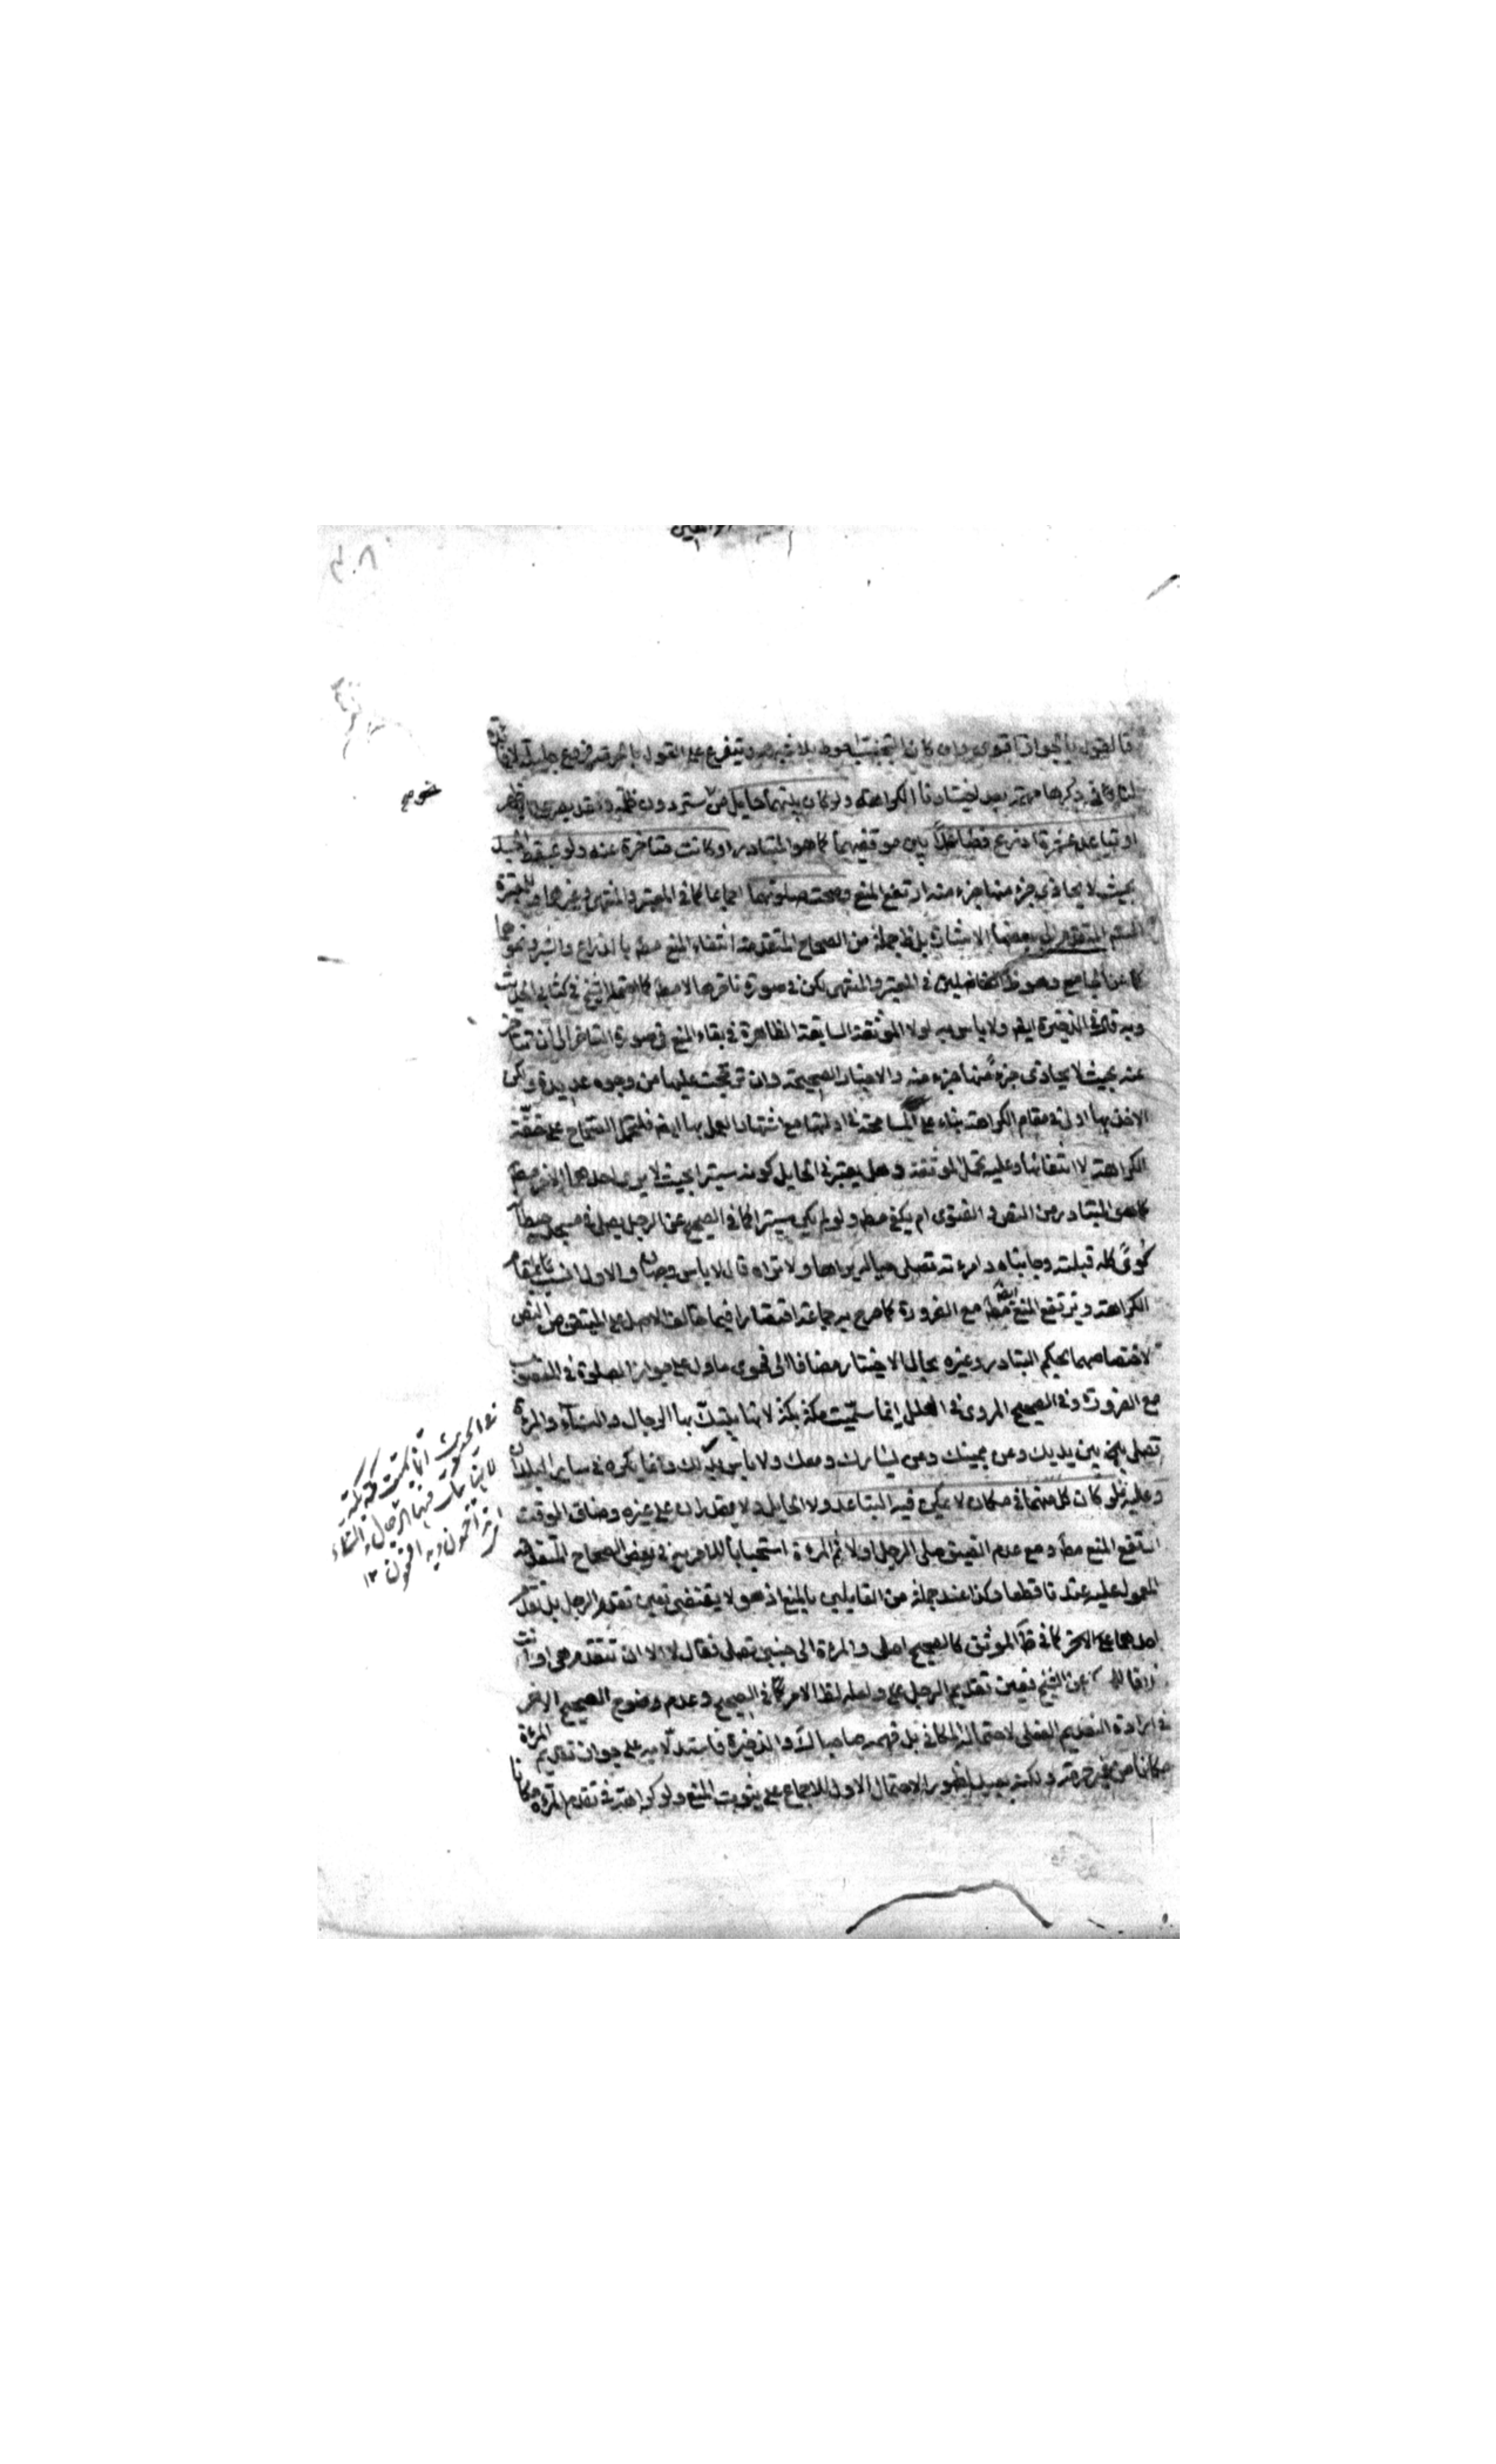 فالقول بالجواز اقوى وان كان التجنب احوط بلا شبهة ويتفرع على القول بالحرمة فروع جليلة لا فائدة
لنا في ذكرها مهمة بعد اختيارنا الكراهة ولو كان بينهما حايل من ستر دون ظلمة وفقد بصر
او تباعد عشرة اذرع فصاعدا بين موقفيهما كما هو المتبادر او كانت متاخرة عنه ولو بمسقط الجسد
بحيث لا يحاذي جزء منها جزء منه ارتفع المنع وصحت صلوتهما اجماعا كما في المعتبر والمنتهى وغيرهما وللمعتبرة
المتقدم الى بعضها الاشارة بل ظ جملة من الصحاح المتقدمة انتفاء المنع مط بالذراع والشبر ونحوهما
كما عن الجامع وهو ظ الفاضلين في المعتبر والمنتهى لكن في صورة تاخرها لا مط كما احتمله الشيخ في كتابي الحديث
وبه قال في الذخيرة ايض ولا باس به لولا الموثقة السابقة الظاهرة في بقاء المنع في صورة التاخر الى ان تتاخر
عنه بحيث لا يحاذي جزء منها جزء منه والاخبار الصحيحة وان ترجحت عليها من وجوه عديدة ولكن
الاخذ بها اولى في مقام الكراهة بناء على المسامحة في ادلتها مع اشتهار العمل بها ايض فلتحمل الصحاح على خفة
الكراهة لا انتفائها وعليه تحمل الموثقة وهل يعتبر في الحايل كونه ستيرا بحيث لا يرى احدهما الاخر مط
كما هو المتبادر من النص والفتوى ام يكفي مط ولو لم يكن ستيرا كما في الصحيح عن الرجل يصلي في مسجد حيطانه
كوى كله قبلته وجانباه وامرءته تصلي حياله يراها ولا تراه قال لا باس وجهان والاول انسب بالمقام
الكراهة ويرتفع المنع ايض مط مع الضرورة كما صرح به جماعة اقتصارا فيما خالف الاصل على المتيقن من النص
لاختصاصهما بحكم التبادر وغيره بحال الاختيار مضافا الى فحوى ما دل على جواز الصلوة في المغصوب
مع الضرورة وفي الصحيح المروي في العلل انما سميت مكة بكة لانها يبتك بها الرجال والنساء والمرءة
تصلي بين يديك وعن يمينك وعن يسارك ومعك ولا باس بذلك وانما يكره في ساير البلدان
وعليه فلو كان كل منهما في مكان لا يمكن فيه التباعد ولا الحايل ولا يقدران على غيره وضاق الوقت
ارتفع المنع مط ومع عدم الضيق صلى الرجل اولا ثم المرءة استحبابا للامر به في بعض الصحاح المتقدمة
المحمول عليه عندنا قطعا وكذا عند جملة من القايلين بالمنع اذ هو لا يقتضي تعين تقدم الرجل بل تقدم
احدهما على الاخر كما في ظ الموثق كالصحيح اصلي والمرءة الى جنبي تصلي فقال لا الا ان تتقدم هي او انت
خلافا للمحكي عن الشيخ فعين تقديم الرجل ولعله لظ الامر كما في الصحيح وعدم وضوح الصحيح الاخر
في ارادة التقديم الفعلي لاحتماله المكاني بل فهمه صاحبا المدارك والذخيرة فاستدلا به على جواز تقديم المرءة
مكانا من غير حرمة ولكنه بعيد لظهور الاحتمال الاول للاجماع على ثبوت المنع ولو كراهة في تقدم المرءة مكانا
في الحديث انما سميت مكة بكة